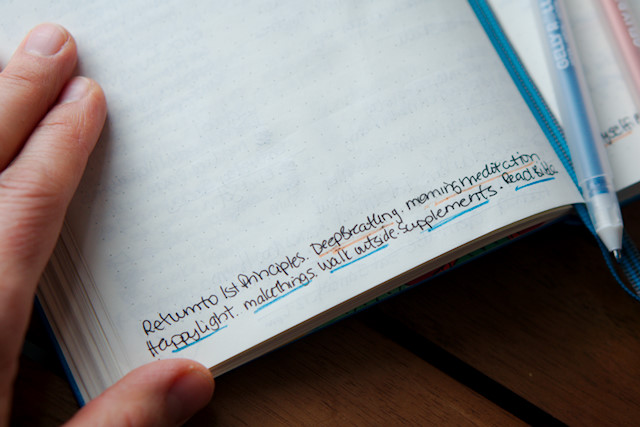 Return to 1st Principles. Deep Breathing. morning meditation
Happy light. make things. walk outside. supplements. Read Bible